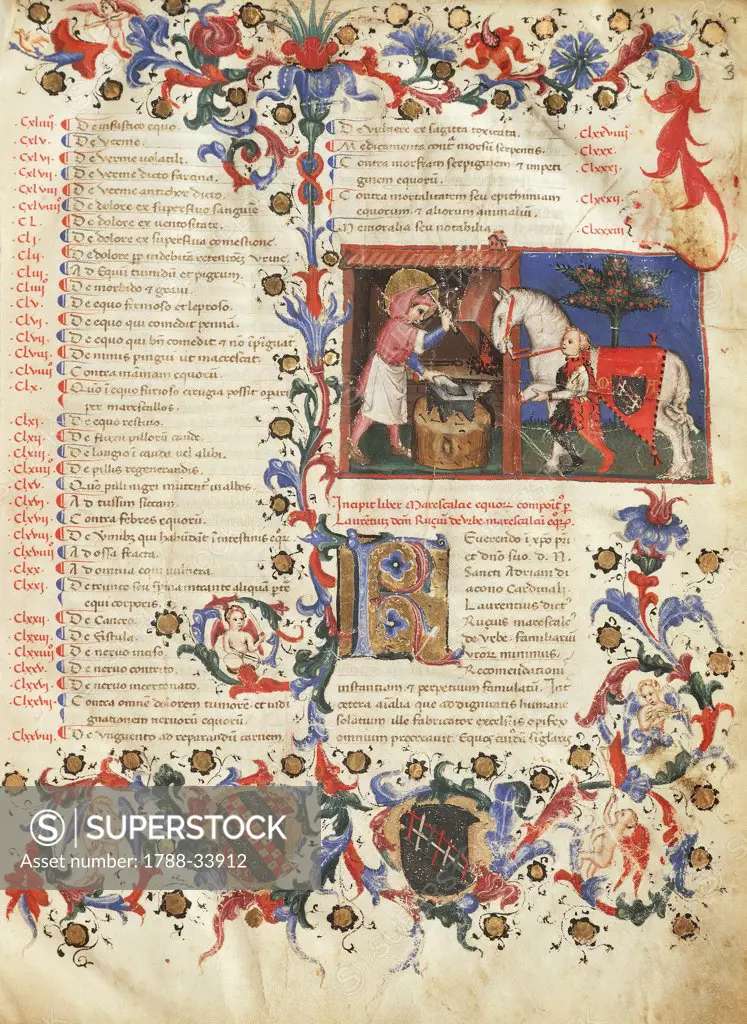 3
.Cxliiij. De infastico equo.
.Cxlv. De verme.
.Cxlvi. De verme volatili.
.Cxlvii. De verme dicto farcina.
.Cxlviii. De verme anticħor dicto.
.Cxlviiij. De dolore ex superfluo sanguine
.CL. De dolore ex ventositate.
.CLj. De dolore ex superflua comestione.
.CLij. De dolore ꝓp indebita retentioēꝫ urine.
.CLiij. Ad equū tumidū et pigrum.
.CLiiij. De morbido et
.CLv. De equo formoso et leproso.
.CLvi. De equo qui comedit penna.
.CLvij. De equo qui bn̄ comedit et nō īpīguat̄
.CLviij. De nimis pingui ut macrescat.
.CLviiij. Contra īnaniam equorū.
.CLx. Quō ī equo furioso cirugia possit opari
per marescallos.
.CLxi. De equo restiuo.
.CLxij. De fluxu pillorū caude.
.CLxiij. De in cauda vel alibi.
.CLxiiij. De pillis regenerandis.
.CLxv. Quō pili nigri mutent̄ in albos.
.CLxvi. Ad tussim siccam.
.CLxvij. Contra febres equorū.
.CLxviij. De vmibꝫ qui habitāt ī intestinis eqr̄.
.CLxviiij. Ad ossa fracta.
.CLxx. Ad omnia vulnera.
.CLxxi. De trunco seu spina intrante aliquā pt̄e
equi corporis.
.CLxxij. De Cancro.
.CLxxiij. De fistula.
.CLxxiiij. De neruo inciso.
.CLxxv. De neruo contrito.
.CLxxvj. De neruo
.CLxxvij. Contra omnē dolorem tumorē et indi
gnationem neruorū equorū.
.CLxxviij. De vnguento ad reparandū carnem.
De vulnere ex sagitta toxicata. CLxxviiij.
Medicamenta cont̄ morsū serpentis. CLxxx.
Contra morfeam serpiginem et impeti CLxxxj.
ginem equorū.
Contra mortalitatem seu epithimiam CLxxxij.
equorum et aliorum animaliū.
Memoralia seu notabilia. CLxxxiij.
Incipit liber Marescalcie equoꝝ composit̄ p̱
Laurētiūz dcm̄ Ruciū de vrbe marescalcū eqꝝ.
Reuerendo ī xpo pri
et dn̄o suo. d. N.
Sancti Adriani di
acono Cardinali.
Laurentius dict̄
Rucius marescalc̄
de vrbe familiariū
vror minimus.
Recomendationi
instantiam et perpetuum famulatū. Int̄
cetera aīalia que ad dignitatis humane
solatium ille fabricator excelsus opifex
omnium procreauit. Equos
SUPERSTOCK
Asset number: 1788-33912